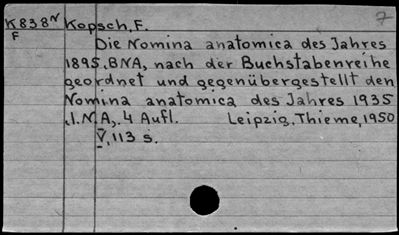 7
K838N Kopsch, F.
F
Die Nomina anatomica des Jahres
1895, BNA, nach der Buchstabenreihe
geordnet und gegenübergestellt den
Nomina anatomica des Jahres 1935
,I.N.A,. 4 Aufl. Leipzig, Thieme, 1950
V, 113 s.